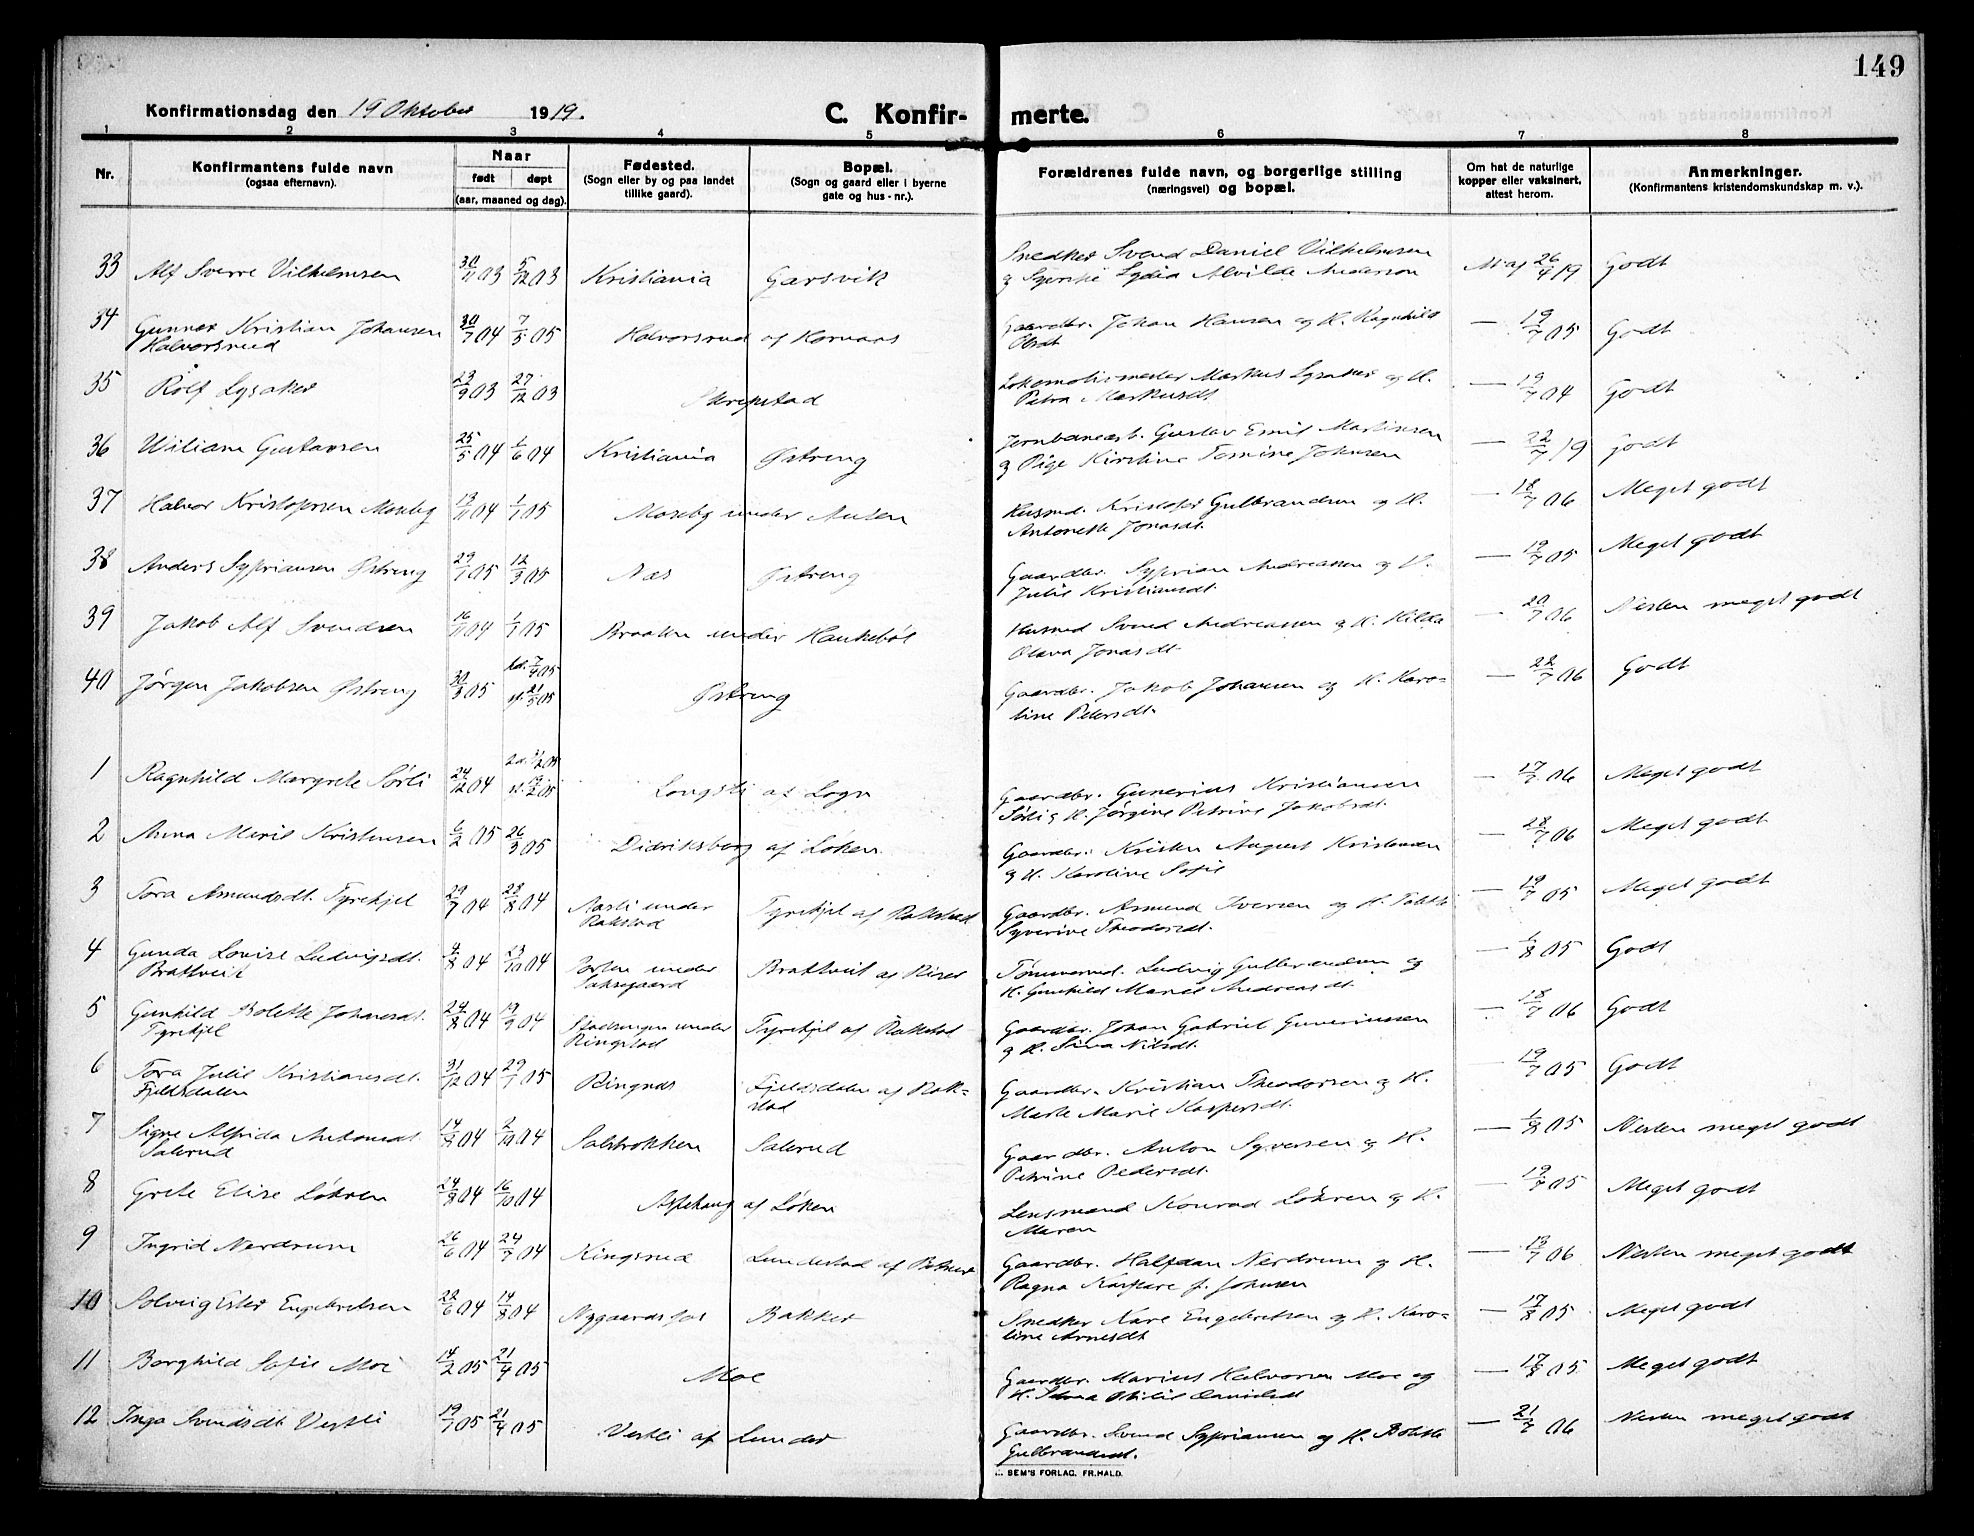 149
Konfirmationsdag den 19 Oktober 1919. C. Konfir- merte.
1 2 3 4 5 6 7 8
Nr. Konfirmantens fulde navn (ogsaa efternavn). Naar født døpt (aar, maaned og dag). Fødested. (Sogn eller by og paa landet tillike gaard). Bopæl. (Sogn og gaard eller i byerne gate og hus-nr.). Forældrenes fulde navn, og borgerlige stilling (næringsvei) og bopæl. Om hat de naturlige kopper eller vaksinert, attest herom. Anmerkninger. (Konfirmantens kristendomskundskap m. v.).
33 Alf Sverre Vilhelmsen 30/11 03 5/12 03 Kristiania Garsvik Snedker Svend Daniel Vilhelmsen
og Lydia Alvilde Anderson 26/4 19 Godt
34 Gunnar Kristian Johansen 30/7 04 7/5 05 Halvorsrud af Kornaas Gaardbr. Johan Hansen og H. Ragnhild 19/7 05 Godt
Halvorsrud Olsdt
35 Rolf Lysaker 23/9 03 27/12 03 Skrepstad Lokomotivmester Markus Lysaker og H. — 19/7 04 Godt
Petra Markusdt.
36 Wiliam Gustavsen 25/5 04 1/6 04 Kristiania Østreng Jernbanearb. Gustav Emil Martinsen — 22/7 19 Godt
og Pige Kirstine Tomine Johnsen
37 Halvor Kristofersen Moseby 13/11 04 1/1 05 Moseby under Husmd. Kristofer Gulbrandsen og H. — 18/7 06 Meget godt
Antonette Jonasdt.
38 Anders Sypriansen Østreng 29/1 05 12/3 05 Næs Østreng Gaardbr. Syprian Andreassen og H. — 19/7 05 Meget godt
Julie Kristiansdt.
39 Jakob Alf Svendsen 16/11 04 1/1 05 Braaten under Haukebøl Husmd Svend Andreassen og H. Hilda — 20/7 06 Nesten meget godt
Olava Jonasdt.
40 Jørgen Jakobsen Østreng 30/3 05 7/4 05 21/5 05 Østreng Gaardbr. Jakob Johansen og H. Karo- — 22/7 06 Godt
line Petersdt.
1 Ragnhild Margrete Sørli 24/12 04 19/2 05 Gaardbr. Gunerius Kristiansen — 17/7 06 Meget godt
Sørli og H. Jørgine Petrine Jakobsdt.
2 Anna Marie Kristensen 6/2 05 26/3 05 Didriksborg af Løken Gaardbr. Kristen August Kristensen — 28/7 06 Meget godt
og H. Karoline Sofie
3 Tora Asmundsdt. Tyrekjel 29/7 04 28/8 04 Aasli under Tyrekjel af Rakstad Gaardbr. Asmund Iversen og H. — 19/7 05 Meget godt
Rakstad Syverine Theodorsdt.
4 Gunda Lovise Ludvigsdt. 4/8 04 23/10 04 under Bratveit af Riser Tømmermd. Ludvig Gulbrandsen og — 1/8 05 Godt
Bratveit H. Gunhild Marie Andreasdt.
5 Gunhild Bolette Johansdt. 24/8 04 19/9 04 under Tyrekjel af Rakstad Gaardbr. Johan Gabriel Guneriussen — 18/7 06 Godt
Tyrekjel Ringstad og H. Sina Nilsdt.
6 Tora Julie Kristiansdt. 31/12 04 29/1 05 Bingnæs Fjeldsdalen af Rak- Gaardbr. Kristian Theodorsen og H. — 19/7 05 Godt
Fjeldsdalen stad Marte Marie Kaspersdt.
7 Signe Alfrida Antonsdt. 14/8 04 2/10 04 Salsbrokken Salerud Gaardbr. Anton Syversen og H. — 1/8 05 Nesten meget godt
Salerud Petrine Pedersdt.
8 Grete Elise Løkren 24/8 04 16/10 04 Aspehaug af Løken Lensmand Konrad Løkren og H. — 19/7 05 Meget godt
Maren
9 Ingrid Nerdrum 26/6 04 24/7 04 Kingsrud Lundestad af Gaardbr. Halfdan Nerdrum og H. — 13/7 06 Nesten meget godt
Ragna Kaspare f. Johnsen
10 Solveig Ester Engebretsen 22/6 04 14/8 04 Nygaardsfos Bakker Snedker Kare Engebretsen og H. Karo- — 17/8 05 Meget godt
line Arnesdt
11 Borghild Sofie Moe 14/2 05 21/4 05 Moe Gaardbr. Marius Halvorsen Moe og — 17/8 05 Meget godt
H.
12 Inga Svendsdt. Vestli 19/1 05 21/4 05 Vestli af Lunder Gaardbr. Svend Sypriansen og H. Bolette — 21/7 06 Nesten meget godt
Gulbrandsdt.
SEM'S FORLAG, FR.HALD.